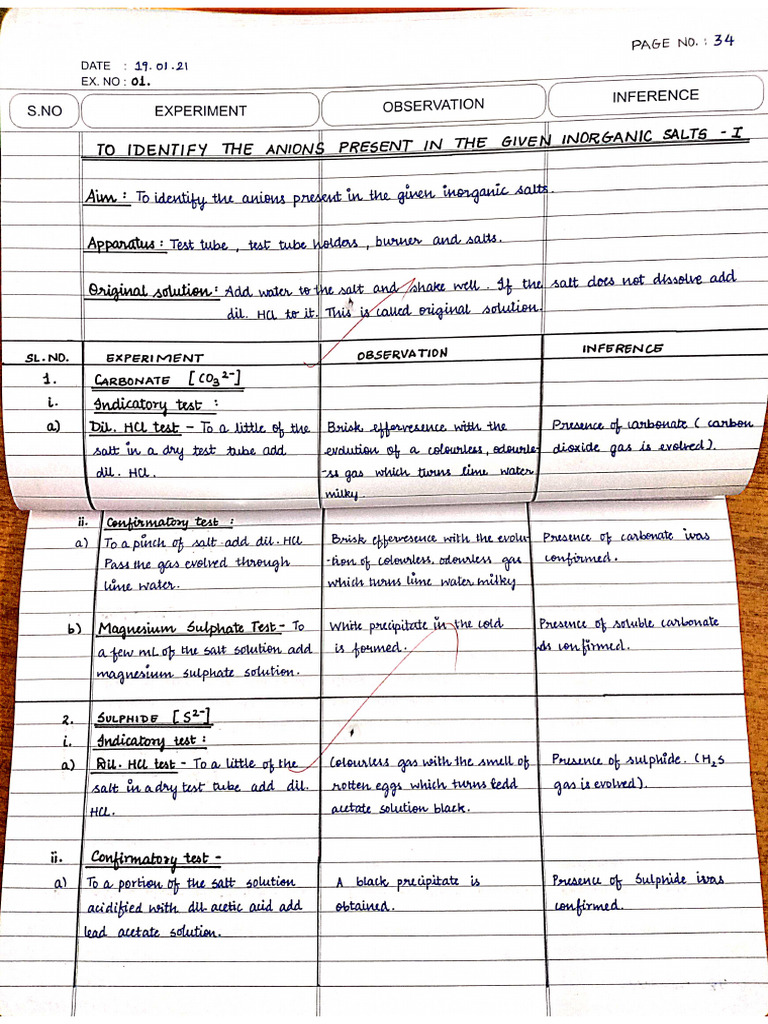 PAGE NO. : 34
DATE : 19.01.21
EX. NO : 01.
S.NO EXPERIMENT OBSERVATION INFERENCE
TO IDENTIFY THE ANIONS PRESENT IN THE GIVEN INORGANIC SALTS - I
Aim : To identify the anions present in the given inorganic salts.
Apparatus : Test tube , test tube holders , burner and salts.
Original solution : Add water to the salt and shake well . If the salt does not dissolve add
dil. HCl to it. This is called original solution.
SL.NO. EXPERIMENT OBSERVATION INFERENCE
1. CARBONATE [CO3 2-]
i. Indicatory test :
a) Dil. HCl test - To a little of the Brisk effervesence with the Presence of carbonate ( carbon
salt in a dry test tube add evolution of a colourless, odourle- dioxide gas is evolved).
dil. HCl. -ss gas which turns lime water
milky.
ii. Confirmatory test :
a) To a pinch of salt add dil. HCl Brisk effervesence with the evolu- Presence of carbonate was
Pass the gas evolved through -tion of colourless, odourless gas confirmed.
lime water. which turns lime water milky
b) Magnesium Sulphate Test - To White precipitate in the cold Presence of soluble carbonate
a few mL of the salt solution add is formed. is confirmed.
magnesium sulphate solution.
2. SULPHIDE [S2-]
i. Indicatory test :
a) Dil. HCl test - To a little of the Colourless gas with the smell of Presence of sulphide. (H2S
salt in a dry test tube add dil. rotten eggs which turns lead gas is evolved).
HCl. acetate solution black.
ii. Confirmatory test -
a) To a portion of the salt solution A black precipitate is Presence of Sulphide was
acidified with dil. acetic acid add obtained. confirmed.
lead acetate solution.